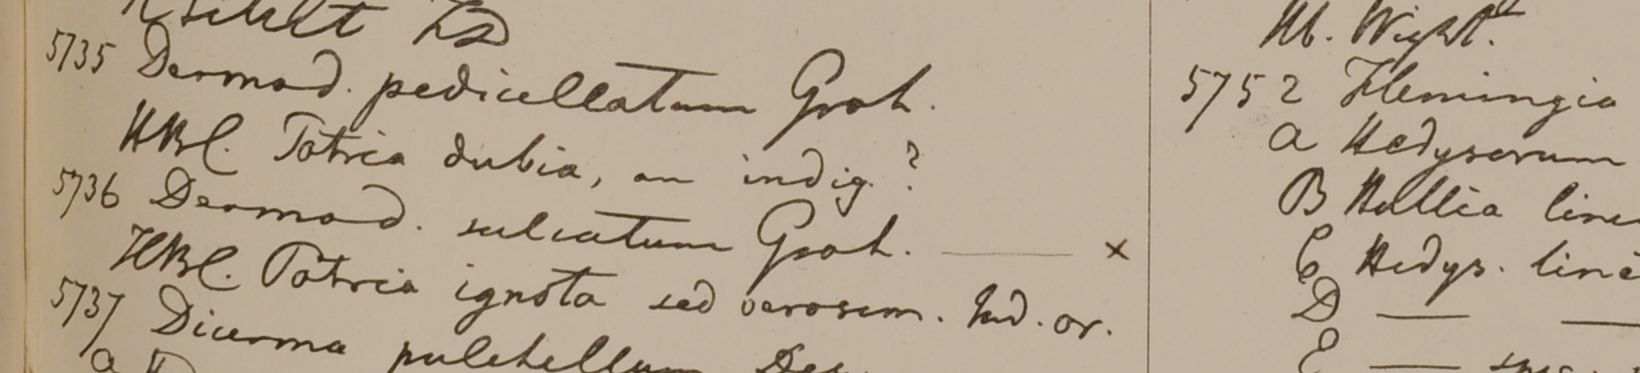 5735 Desmod. pedicellatum Grah.
HBC. Patria dubia, an indig.?
5736 Desmod. sulcatum Grah. —— ×
HBC. Patria ignota sed verosim. Ind. or.
5737 Dicerma pulchellum
Hb. Wight.
5752 Flemingia
a Hedysarum
B Hallia
C Hedys.
D —— ——
E ——